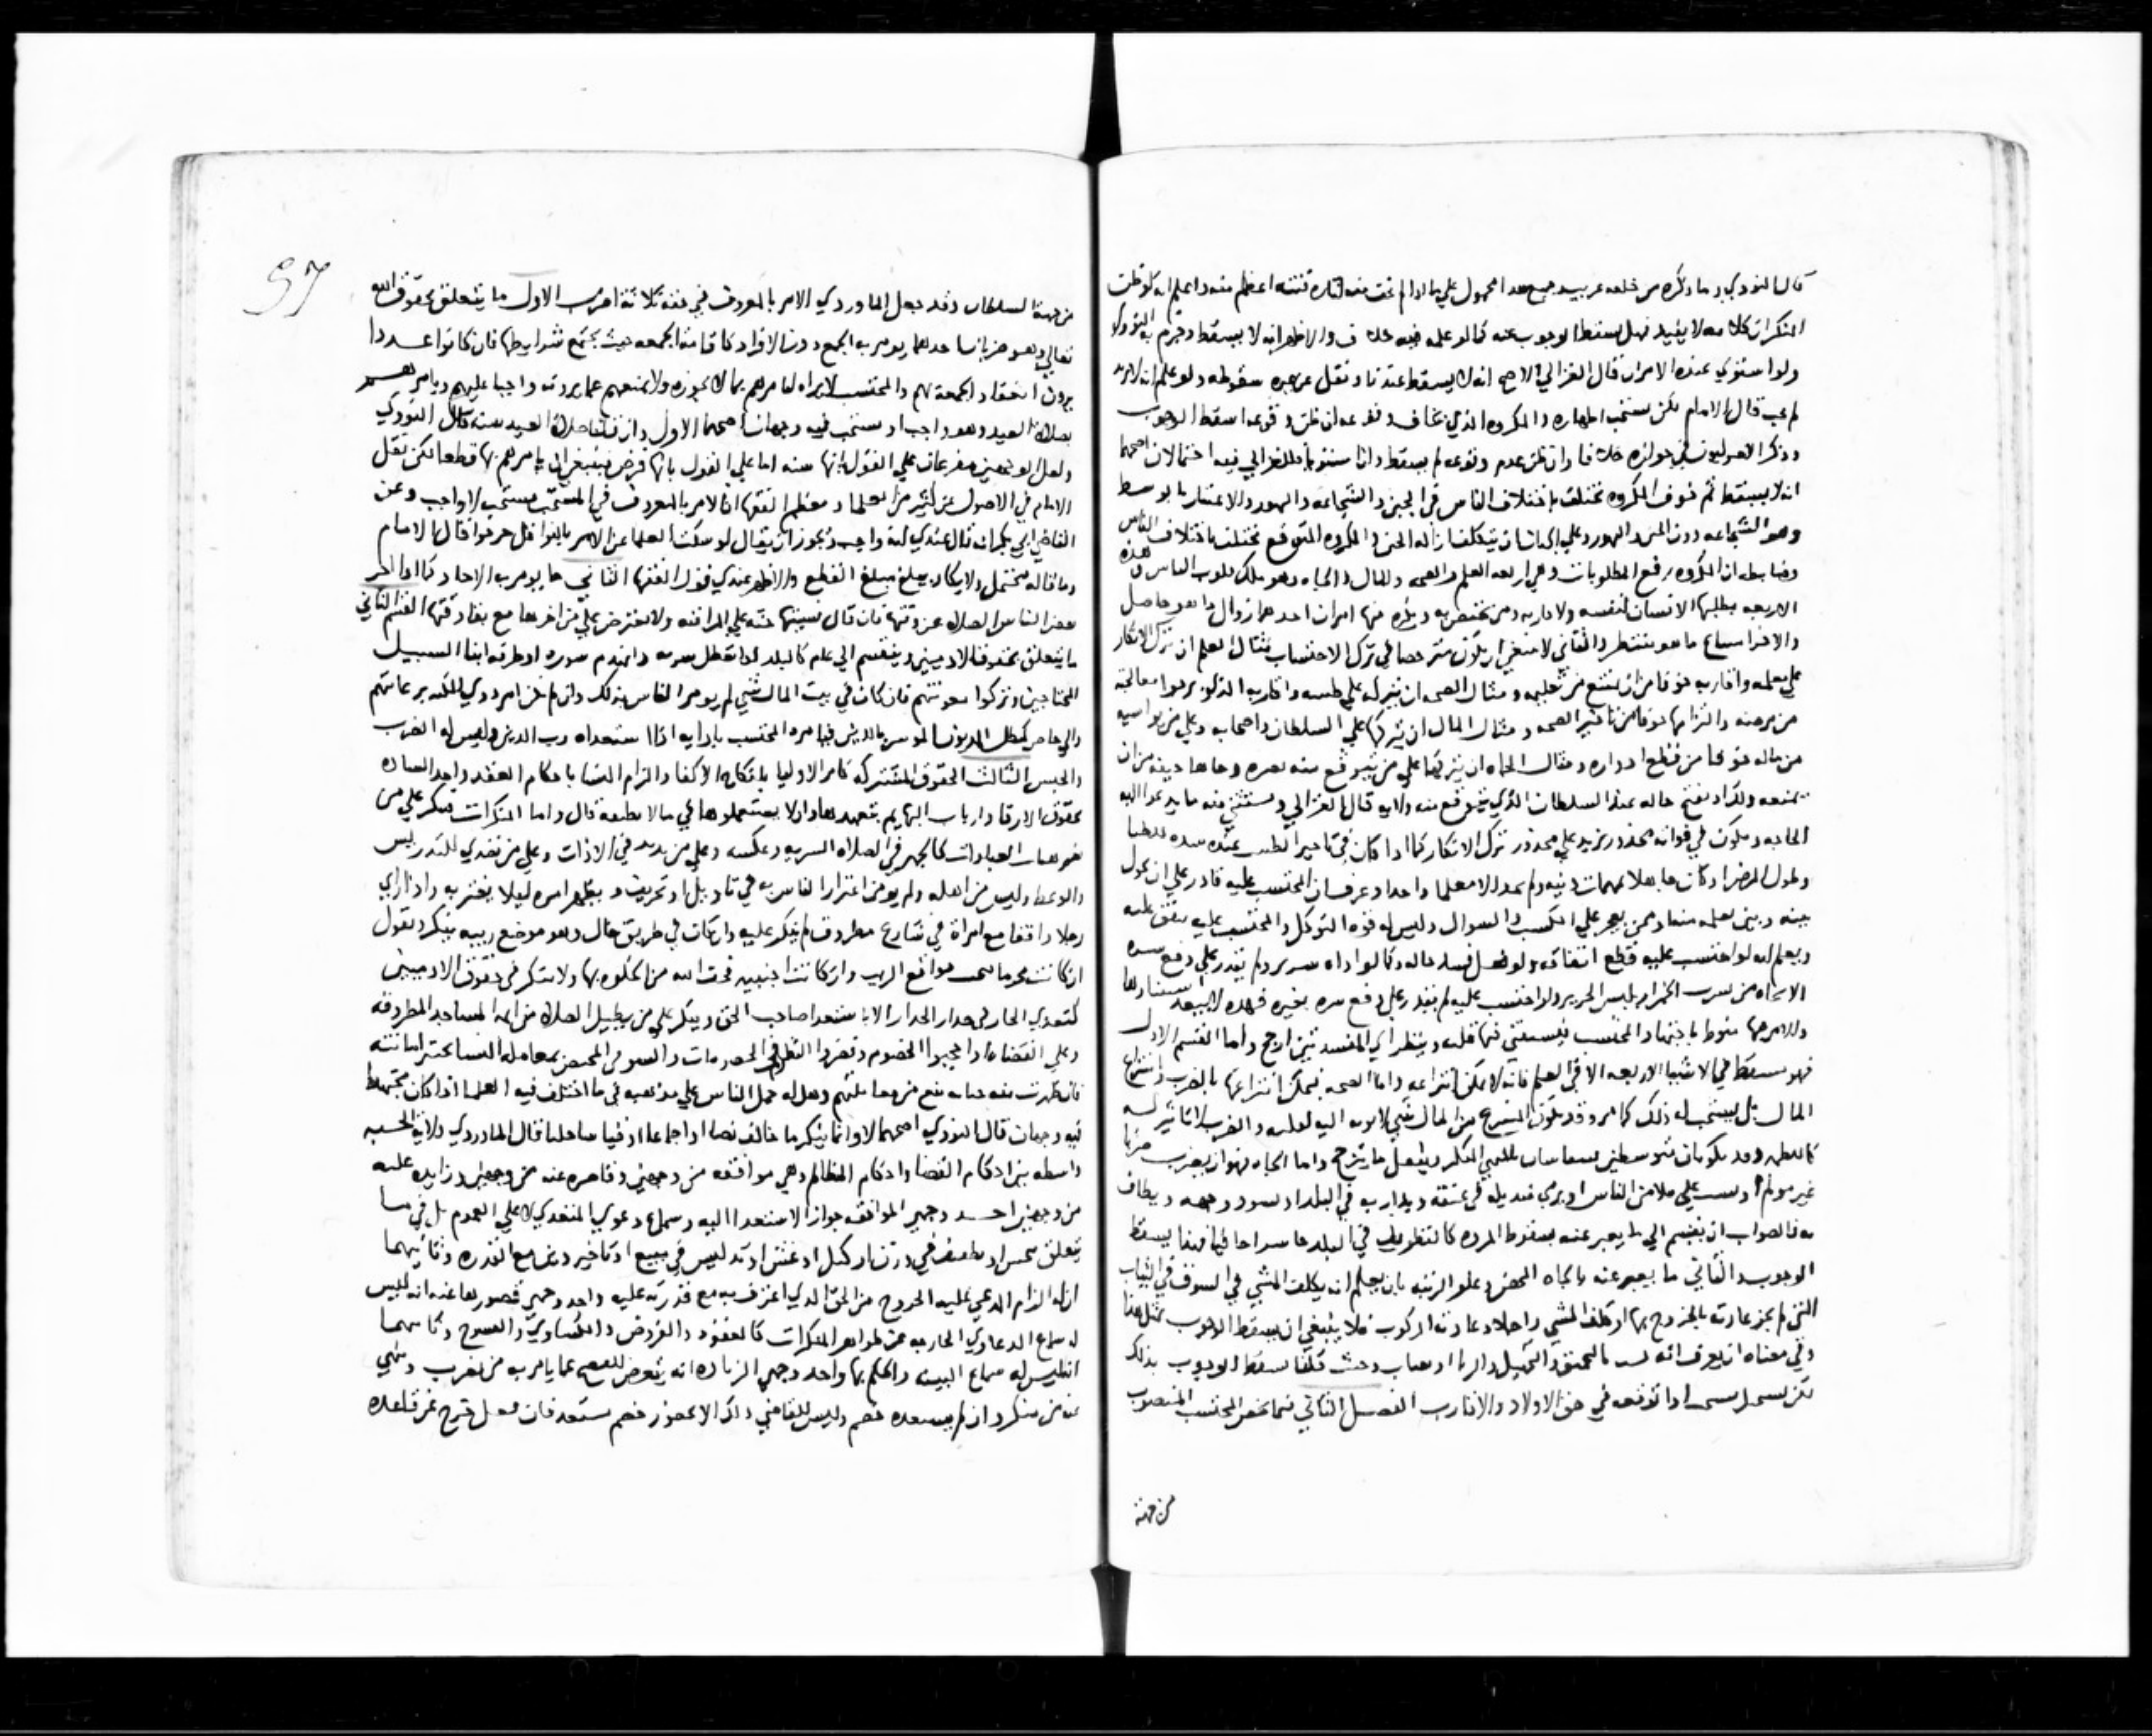 قال النووي وما ذكره من خلعه غريب ومع هذا محمول على ما اذا لم تخف منه اثارة فتنة اعظم منه واعلم انه لو ظن
المنكر ان كلامه لا يفيد فهل يسقط الوجوب عنه كما لو علمه فيه خلاف والاظهر انه لا يسقط وجزم به النووي
ولو استوي عنده الامران قال الغزالي الاصح انه لا يسقط عندنا ونقل عن غيره سقوطه ولو علم انه لا يزيد
لم يجب قال الامام لكن يستحب اظهاره والمكروه الذي يخاف وقوعه ان ظن وقوعه اسقط الوجوب
وذكر الاصوليون في جوازه خلافا وان ظن عدم وقوعه لم يسقط وان استويا فللغزالي فيه احتمالان اصحهما
انه لا يسقط ثم خوف المكروه تختلف باختلاف الناس في الجبن والشجاعه والتهور والاعتبار بالوسط
وهو الشجاعه دون الجبن والتهور وعلي الجبان ان يتكلف ازالة الجبن والمكروه المتوقع تختلف باختلاف الناس
وضابطه ان المكروه يرفع المطلوبات وهي اربعه العلم والصحه والمال والجاه وهو ملك قلوب الناس هذه
الاربعه يطلبها الانسان لنفسه ولاقاربه ومن يختص به ويكره منها امران احدهما زوال ما هو حاصل
والاخر امتناع ما هو منتظر والثاني لا ينبغي ان يكون مرخصا في ترك الاحتساب مثال العلم ان ترك الانكار
على معلمه واقاربه خوفا من ان يمتنع من تعليمه ومثال الصحه ان يتركه على طبيبه واقاربه الذين يرجوا معالجته
من مرضه والتزامها خوفا من تاخير الصحه ومثال المال ان يتركها علي السلطان واصحابه وعلي من يواسيه
من ماله خوفا من قطع ادراره ومثال الجاه ان يتركها علي من يتوقع منه نصره وجاها خيفه من ان
يمنعه ولذا او يقبح حاله عند السلطان الذي يتوقع منه ولايه قال الغزالي ويستثني منه ما يدعوا اليه
الحاجه ويكون في فواته محذور يزيد علي محذور ترك الانكار كما اذا كان في تاخير الطبيب شده الضنا
وطول المرض او كان جاهلا بمهمات دينه ولم يجد الا معلما واحدا وعرف ان المحتسب عليه قادر علي ان يحول
بينه وبين تعلمه منه او ممن يعجز علي الكسب والسوال وليس له قوة التوكل والمحتسب عليه ينفق عليه
ويعلم انه لو احتسب عليه قطع انفاقه ولو فعل فسد حاله وكما لو اذاه شرير ولم يقدر علي دفع شره
الا بجاه من يشرب الخمر او يلبس الحرير ولو احتسب عليه لم يقدر علي دفع شره بغيره فهذه لا يبعد استثناوها
والامر فيها منوط باجتهاد المحتسب فيستفتي فيها قلبه وينظر اي المفسدتين ارجح واما القسم الاول
فهو مسقط في الاشيا الاربعه الا في العلم فانه لا يمكن انتزاعه واما الصحه فيمكن انتزاعها بالضرب وانتزاع
المال بل يستحب له ذلك كما مر وقد يكون المنتزع من المال شي لا يوبه اليه لقلته والضرب لا تاثير له
كاللطمه وقد يكونان متوسطين
غير مولم او يسب على ملا من الناس او يرمي منديله في عنقه ويدار به في البلد او يسود وجهه ويطاف
به فالصواب ان يقسم الي ما يعبر عنه بسقوط المروه كالتطويف في البلد حاسرا حافيا فهذا يسقط
الوجوب والثاني ما يعبر عنه بالجاه المحض وعلو الرتبه بان يعلم انه يكلف المشي في السوق في الثياب
التي لم تجر عادته بالخروج بها او تكلف المشي راجلا وعادته الركوب فلا ينبغي ان يسقط الوجوب بمثل هذا
وفي معناه ان يعرف انه بالحمق والجهل والريا وحيث قلنا سقط الوجوب بذلك
لكن اذا توقعه في حق الاولاد والاقارب الفصل الثاني فيما يخص المحتسب المنصوب
من جهة
57
من جهة السلطان وقد جعل الماوردي الامر بالمعروف في حقه ثلاثة اضرب الاول ما يتعلق بحقوق الله
تعالي وهو ضربان احدهما يومر به الجمع دون الافراد كاقامة الجمعه حيث تجتمع شرايطها فان كانوا عددا
يرون انعقاد الجمعة بهم والمحتسب لا يراه فلا يامرهم بما لا يجوزه ولا ينهاهم عما يرونه واجبا عليهم ويامرهم
بصلاة العيد وهو واجب او مستحب فيه وجهان اصحهما الاول وان قلنا صلاة العيد سنه قال النووي
ولعل الوجهين مفرعان علي القول بانها سنه اما علي القول بانها فرض فينبغي ان يامرهم بها قطعا لكن نقل
الامام في الاصول عن كثير من العلما ومعظم الفقها ان الامر بالمعروف في المستحب مستحب لا واجب وعن
القاضي ابي بكر انه قال عندي انه واجب ويجوز ان يقال لو سكت العلما عن الامر بالنوافل حرجوا قال الامام
وما قاله محتمل ولا يكاد يبلغ مبلغ القطع والاظهر عندي قول الفقها الثاني ما يومر به الاحاد كما اذا اخر
بعض الناس الصلاه عن وقتها فان قال نسيتها حثه علي المراقبه ولا يعترض علي من اخرها مع بقا وقتها القسم الثاني
ما يتعلق بحقوق الادميين وينقسم الي عام كالبلد اذا تعطل شربه او انهدم سوره او طرقه ابنا السبيل
المحتاجين وتركوا معونتهم فان كان في بيت المال شي لم يومر الناس بذلك وان لم يكن امر ذوي المكنه برعايتهم
والي خاص كمطل المديون الموسر بالدين فيامره المحتسب بادايه اذا استعداه رب الدين وليس له الضرب
والحبس الثالث الحقوق المشتركه كامر الاوليا بانكاح الاكفا والزام النسا باحكام العدد واخذ الساده
بحقوق الارقا وارباب البهايم بتعهدها وان لا يستعملوها في ما لا تطيقه قال واما المنكرات فينكر علي من
غير هيات العبادات كالجهر في الصلاه السريه وعكسه وعلي من يزيد في الاذان وعلي من تصدي للتدريس
والوعظ وليس من اهله ولم يومن اغترار الناس به في تاويل او تحريف ويظهر امره ليلا يغتر به واذا راي
رجلا واقفا مع امراة في شارع مطروق لم ينكر عليه وان كان في طريق خال وهو موضع ريبه ينكر ويقول
ان كانت محرما مواقع الريب وان كانت اجنبيه فخف الله من الخلوه بها ولا ينكر في حقوق الادميين
كتعدي الجار في جدار الجار الا باستعدا صاحب الحق وينكر علي من يطيل الصلاة من ايمه المساجد المطروقه
وعلي القضاه اذا حجبوا الخصوم وقصروا النظر في الخصومات والسوقي المختص بمعامله النسا يختبر امانته
فان ظهرت منه خيانه منع من معاملتهم وهل له حمل الناس علي مذهبه في ما اختلف فيه العلما اذا كان مجتهدا
فيه وجهان قال النووي اصحهما لا وانما ينكر ما خالف نصا او اجماعا او قياسا جليا قال الماوردي ولاية الحسبه
واسطه بين احكام القضا واحكام المظالم وهي موافقه من وجهين وقاصره عنه من وجهين وزايده عليه
من وجهين احد وجهي الموافقه جواز الاستعدا اليه وسماع دعوي المتعدي لا علي العموم بل في ما
يتعلق ببخس او تطفيف في وزن او كيل او غش او تدليس في مبيع او تاخير دين مع القدره وثانيهما
ان له الزام المدعي عليه الخروج من الحق الذي اعترف به مع قدرته عليه واحد وجهي قصورها عنه انه ليس
له سماع الدعاوي الخارجه عن ظواهر المنكرات كالعقود والقروض والدعاوي والفسوخ وثانيهما
انه ليس له سماع البينه والحكم بها واحد وجهي الزياده انه يتعرض للفحص عما يامر به من معروف وينهي
عنه من منكر وان لم يستعده خصم وليس للقاضي ذلك الا بحضور خصم مستعد فان فعل خرج عن قاعده